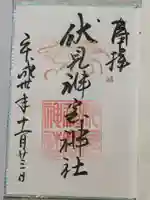 奉拝
伏見神宝神社
平成廿年十一月廿三日